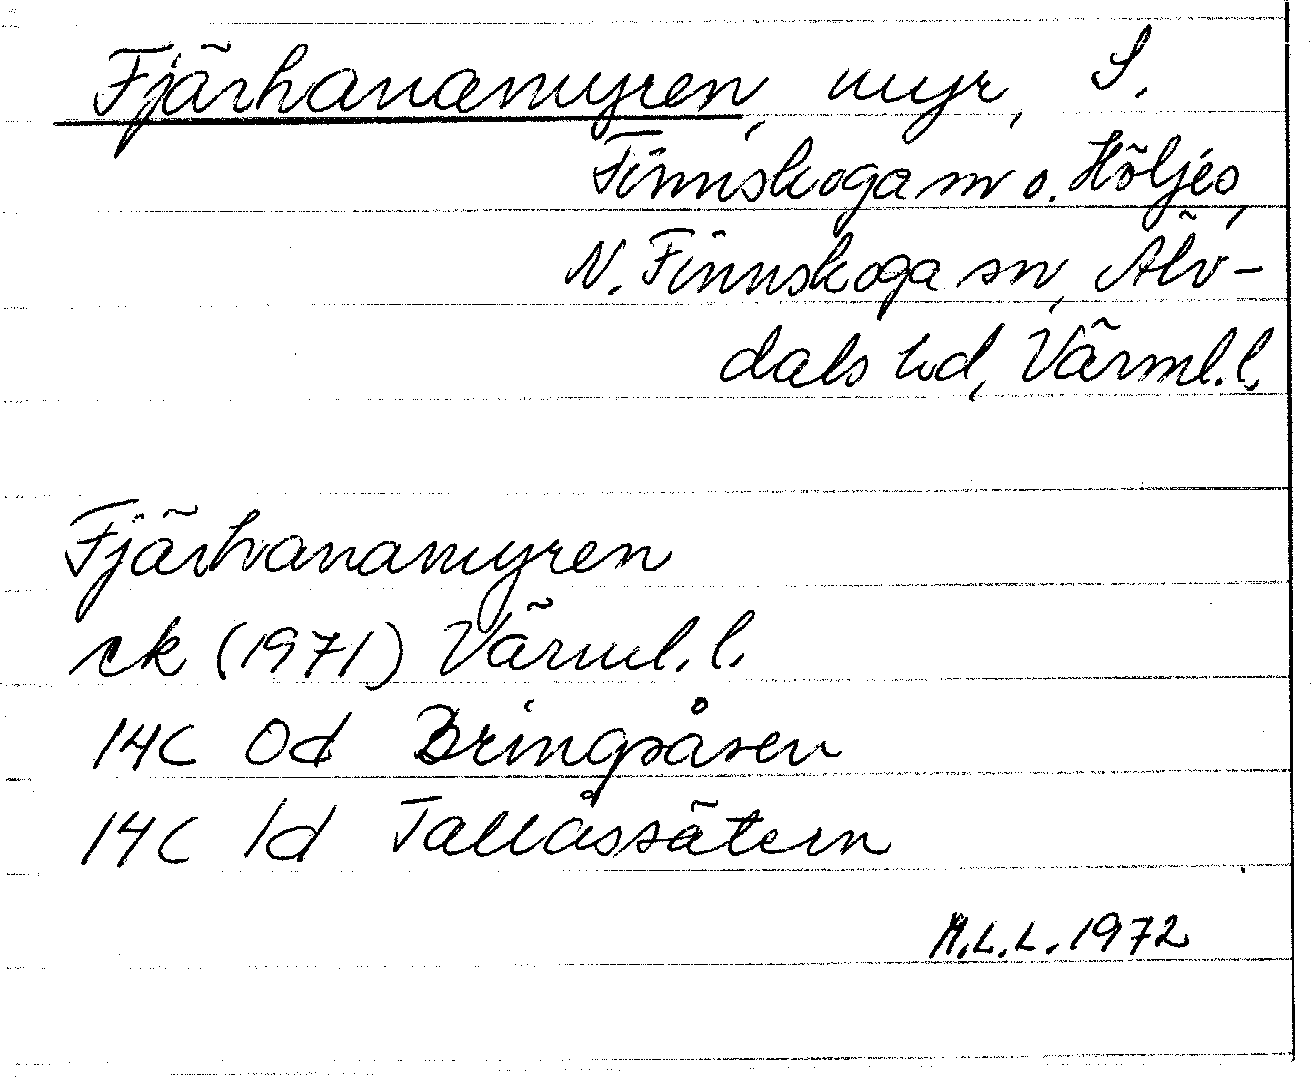 Fjärhanamyren, myr, S.
Finnskoga sn o. Höljes,
N. Finnskoga sn, Älv-
dals hd, Värml.l.
Fjärhanamyren
ek (1971) Värml.l.
14C 0d Bringsåsen
14C 1d Tallåssätern
M.L.L. 1972